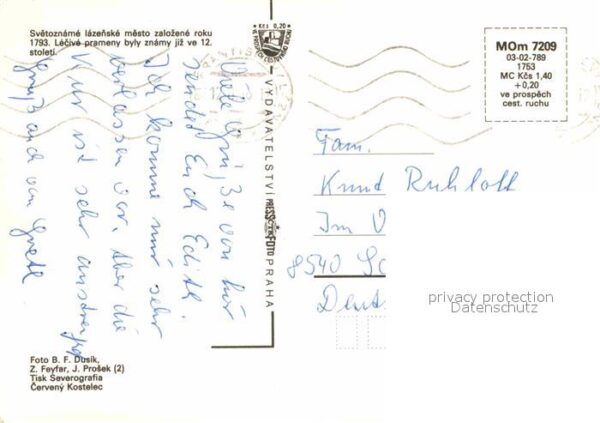 Světoznámé lázeňské město založené roku
1793. Léčivé prameny byly známy již ve 12.
století.
Viele Grüße von hier
sendet Euch Edith.
Ich komme mir sehr
verlassen vor. Aber die
Kur ist sehr anstrengend
Gruß auch von Gretl
Foto B. F. Dusík,
Z. Feyfar, J. Prošek (2)
Tisk Severografia
Červený Kostelec
Kčs 0,20
VYDAVATELSTVÍ PRESSFOTO PRAHA
MOm 7209
03-02-789
1753
MC Kčs 1,40
+0,20
ve prospěch
cest. ruchu
Fam.
Knud
Im
8540
privacy protection
Datenschutz